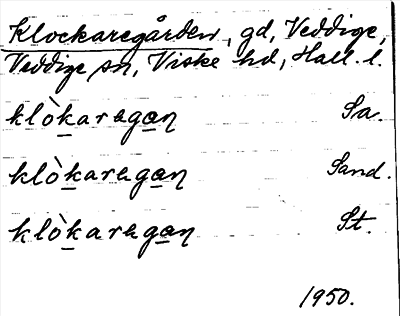 Klockaregården, gd, Veddige,
Veddige sn, Viske hd, Hall. l.
klòkaragan Sa.
klòkaragan Sand.
klòkaragan St.
1950.